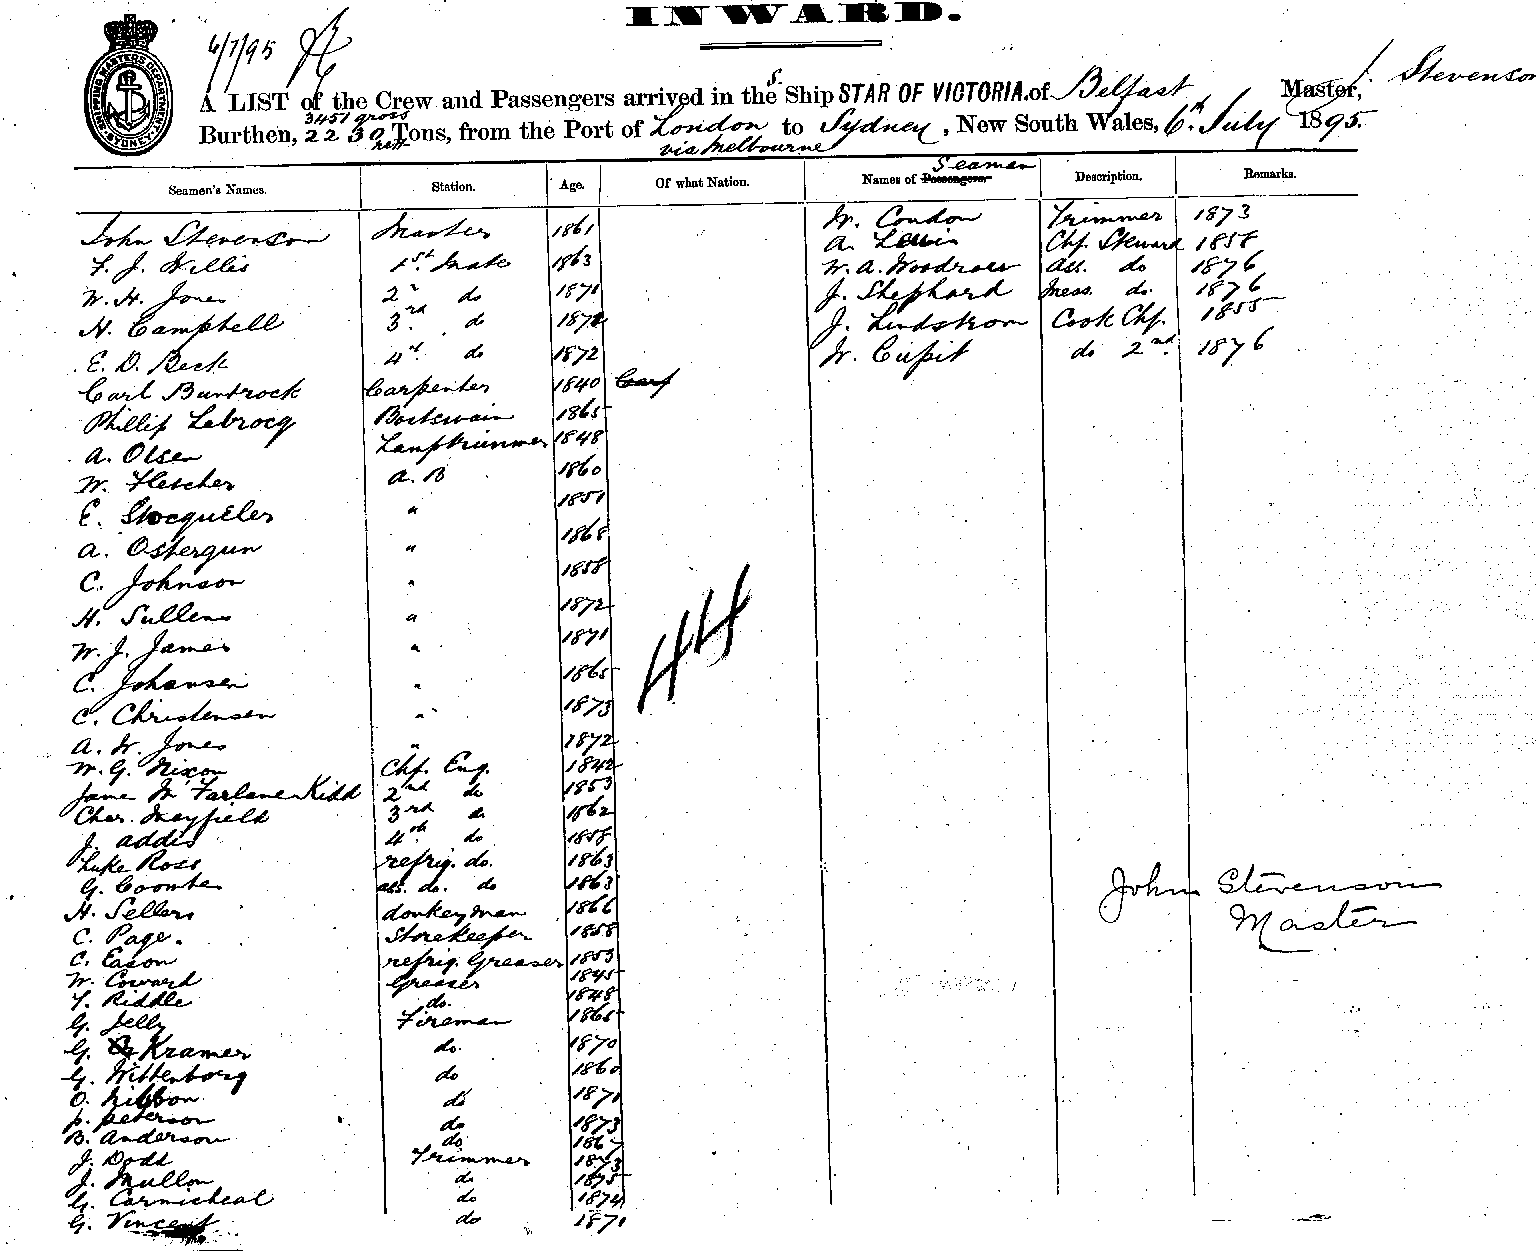 INWARD.
6/7/95
SHIPPING MASTERS DEPARTMENT SYDNEY
A LIST of the Crew and Passengers arrived in the S. Ship STAR OF VICTORIA. of Belfast Master, J. Stevenson
3451 gross
Burthen, 2230 Tons, from the Port of London to Sydney, New South Wales, 6th July 1895.
nett via Melbourne
Seamen's Names. Station. Age. Of what Nation. Names of Passengers. Seamen Description. Remarks.
John Stevenson Master 1861 W. Condon Trimmer 1873
F. J. Willis 1st Mate 1863 A. Lewis Chf. Steward 1858
W. H. Jones 2 do 1871 W. A. Woodroes Ass. do 1876
H. Campbell 3rd do 1872 J. Shephard Mess. do. 1876
E. D. Beck 4th do 1872 J. Lindstrom Cook Chf. 1855
Carl Buntrock Carpenter 1840 Carp W. Cupit do 2nd 1876
Phillip Lebrocq Boatswain 1865
A. Olsen Lamptrimmer 1848
W. Fletcher A. B 1860
E. Stocqueler " 1851
A. Ostergun " 1868
C. Johnson " 1858
H. Sullens " 1872
W. J. James " 1871
C. Johansen " 1865
C. Christensen " 1873
A. W. Jones " 1872
W. G. Nixon Chf. Eng. 1842
Jame McFarlane Kidd 2nd do 1853
Chas. Mayfield 3rd do 1862
J. Addis 4th do 1858
Luke Ross refrig. do. 1863
G. Coombe ass. do. do 1863
H. Sellers donkeyman 1866
C. Page. Storekeeper 1858
C. Eason refrig. Greaser 1853
W. Coward Greaser 1845
T. Riddle do. 1848
G. Jelly Fireman 1865
G. Kramer do. 1870
G. Wittenborg do 1860
O. Nibbon do 1871
P. Peterson do 1873
B. Anderson do 1867
J. Dodd Trimmer 1873
J. Mullon do 1875
G. Carmicheal do 1874
G. Vincent do 1871
44
John Stevenson
Master